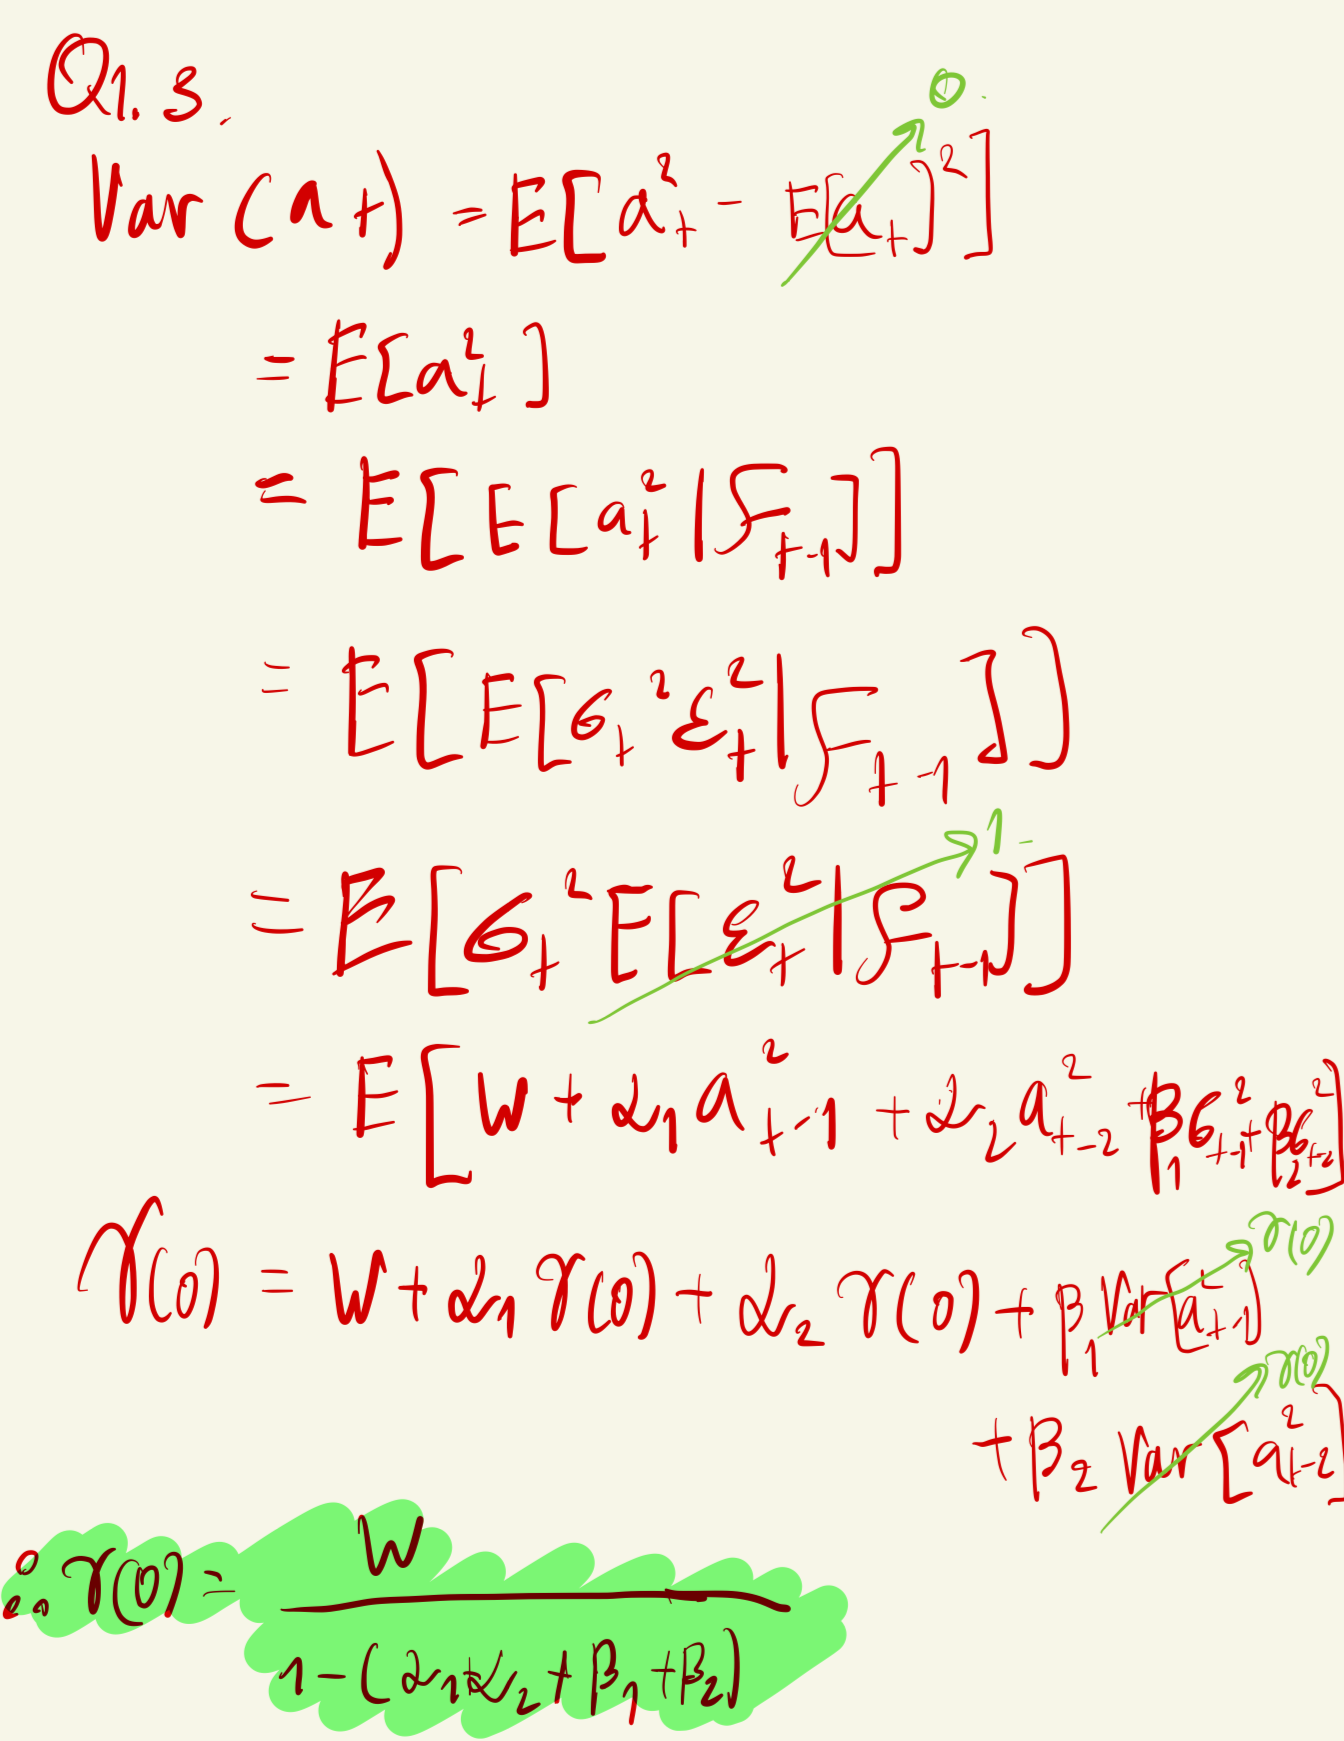 Q1.3.
0.
Var(a_t) = E[a_t^2 - E[a_t]^2]
= E[a_t^2]
= E[E[a_t^2 | F_{t-1}]]
= E[E[σ_t^2 ε_t^2 | F_{t-1}]]
1
= E[σ_t^2 E[ε_t^2 | F_{t-1}]]
= E[W + α_1 a_{t-1}^2 + α_2 a_{t-2}^2 + β_1 σ_{t-1}^2 + β_2 σ_{t-2}^2]
γ(0)
γ(0) = W + α_1 γ(0) + α_2 γ(0) + β_1 Var[a_{t-1}^2]
γ(0)
+ β_2 Var[a_{t-2}^2]
∴ γ(0) = W / (1 - (α_1 + α_2 + β_1 + β_2))